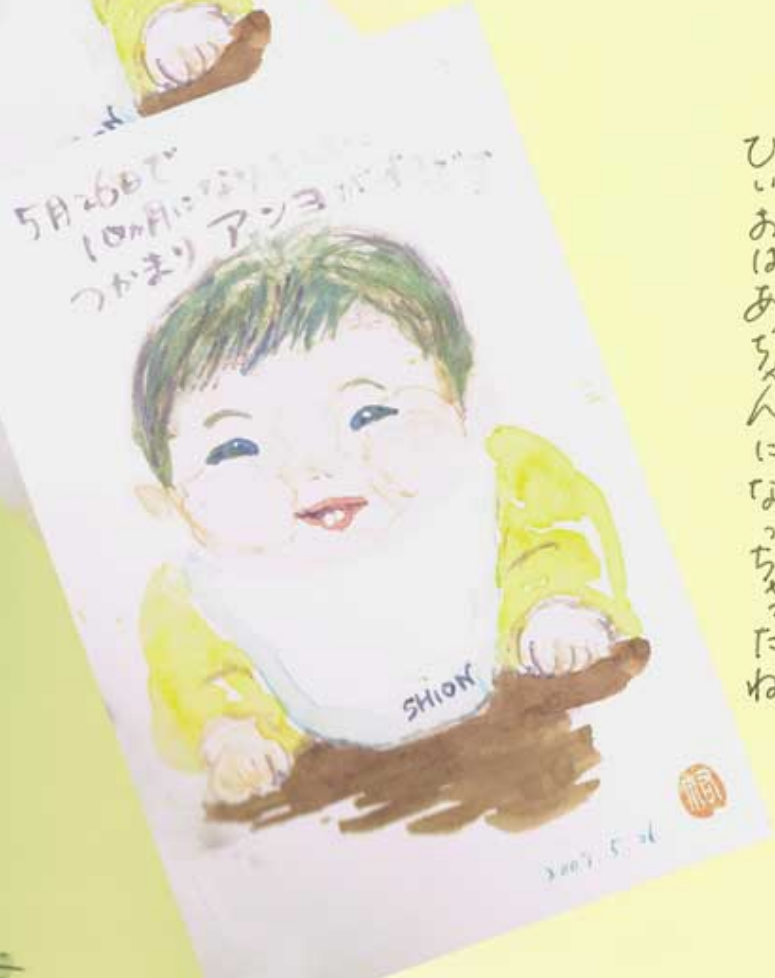 5月26日で
10ヵ月になり
つかまり アンヨ が
SHION
2007.5.26
ひいおばあちゃんになっちゃったね